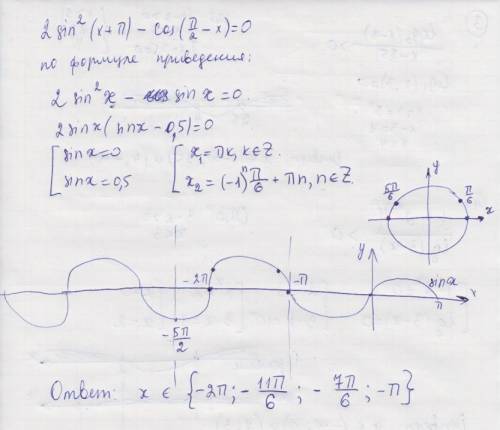 2 sin² (x+π) − cos(π/2 − x)=0
по формуле приведения:
2 sin² x − sin x = 0
2 sin x (sin x − 0,5)=0
[ sin x = 0 [ x₁ = πk, k ∈ Z.
[ sin x = 0,5 [ x₂ = (−1)ⁿ π/6 + πn, n ∈ Z.
y
5π/6 π/6
x
y
−2π −π sin x
π x
−5π/2
Ответ: x ∈ {−2π ; −11π/6 ; −7π/6 ; −π}